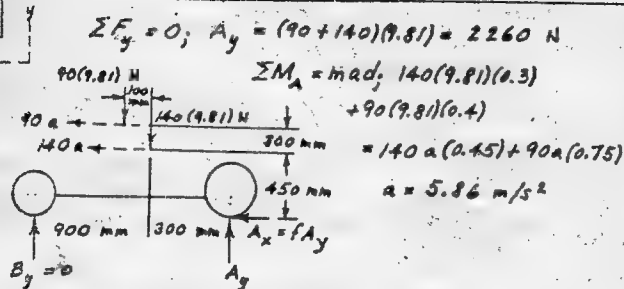 y
ΣF_y = 0; A_y = (90+140)(9.81) = 2260 N
ΣM_A = mad; 140(9.81)(0.3)
+90(9.81)(0.4)
= 140 a(0.45) + 90a(0.75)
a = 5.86 m/s²
90(9.81) N
100
mm
140(9.81) N
90 a
140 a
300 mm
450 mm
900 mm
300 mm
A_x = fA_y
B_y = 0
A_y